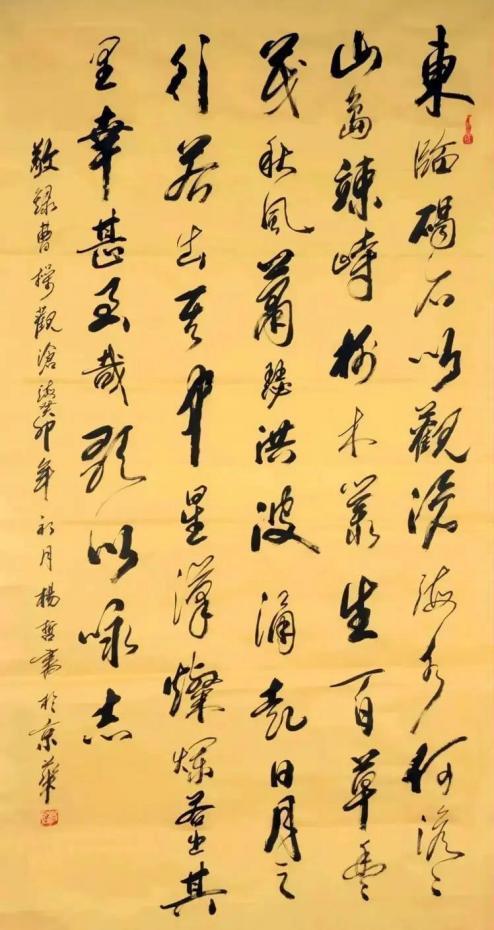 東臨碣石以觀滄海水何澹〻
山島竦峙樹木叢生百草豐
茂秋風蕭瑟洪波涌起日月之
行若出其中星漢燦爛若出其
里幸甚至哉歌以咏志
敬録曹操觀滄海癸卯年初月楊哲書於京華